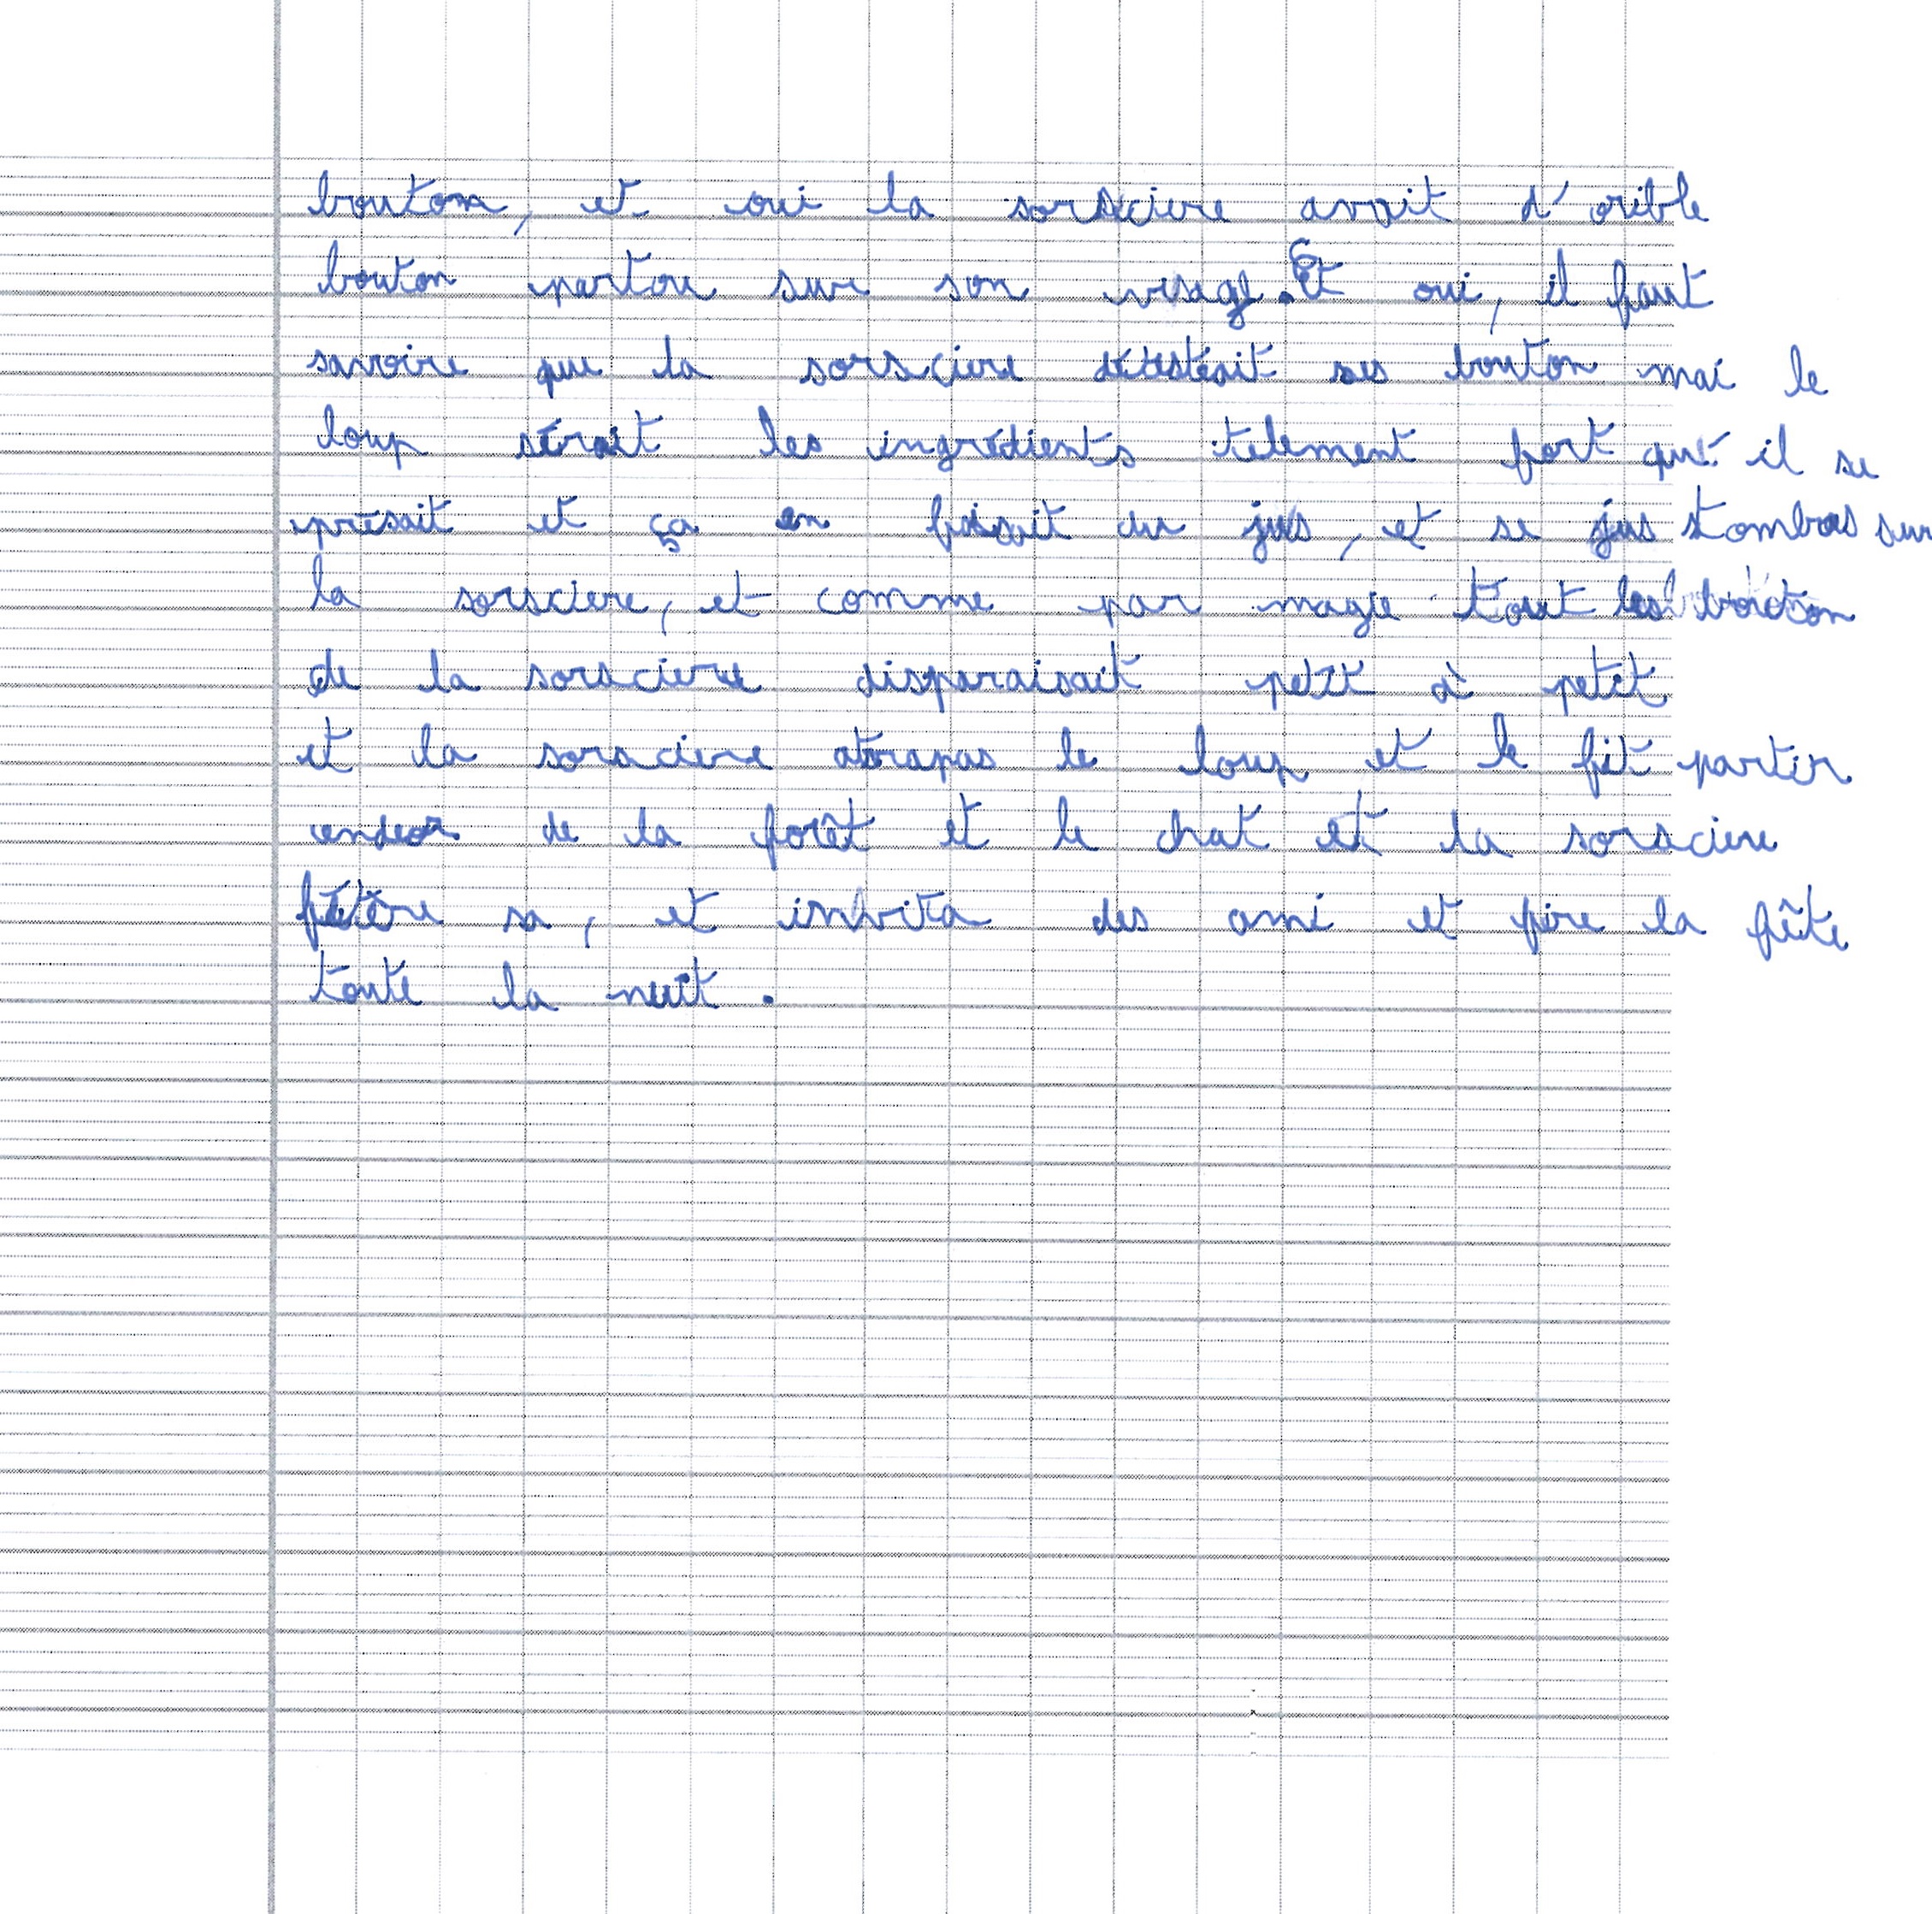 bouton, et oui la sorsciere avait d'orible
bouton partou sur son visage. Et oui, il faut
savoire que la sorsciere détéstait ses bouton mai le
loup sérait les ingrédients telement fort qu'il se
présait et ça en faisait du jus, et se jus tombas sur
la sorsciere, et comme par magie tout les bouton
de la sorsciere disparaisait petit à petit
et la sorsciere atrapas le loup et le fit partir
endeor de la forêt et le chat et la sorsciere
fétère sa, et invita des ami et fire la fête
toute la nuit.